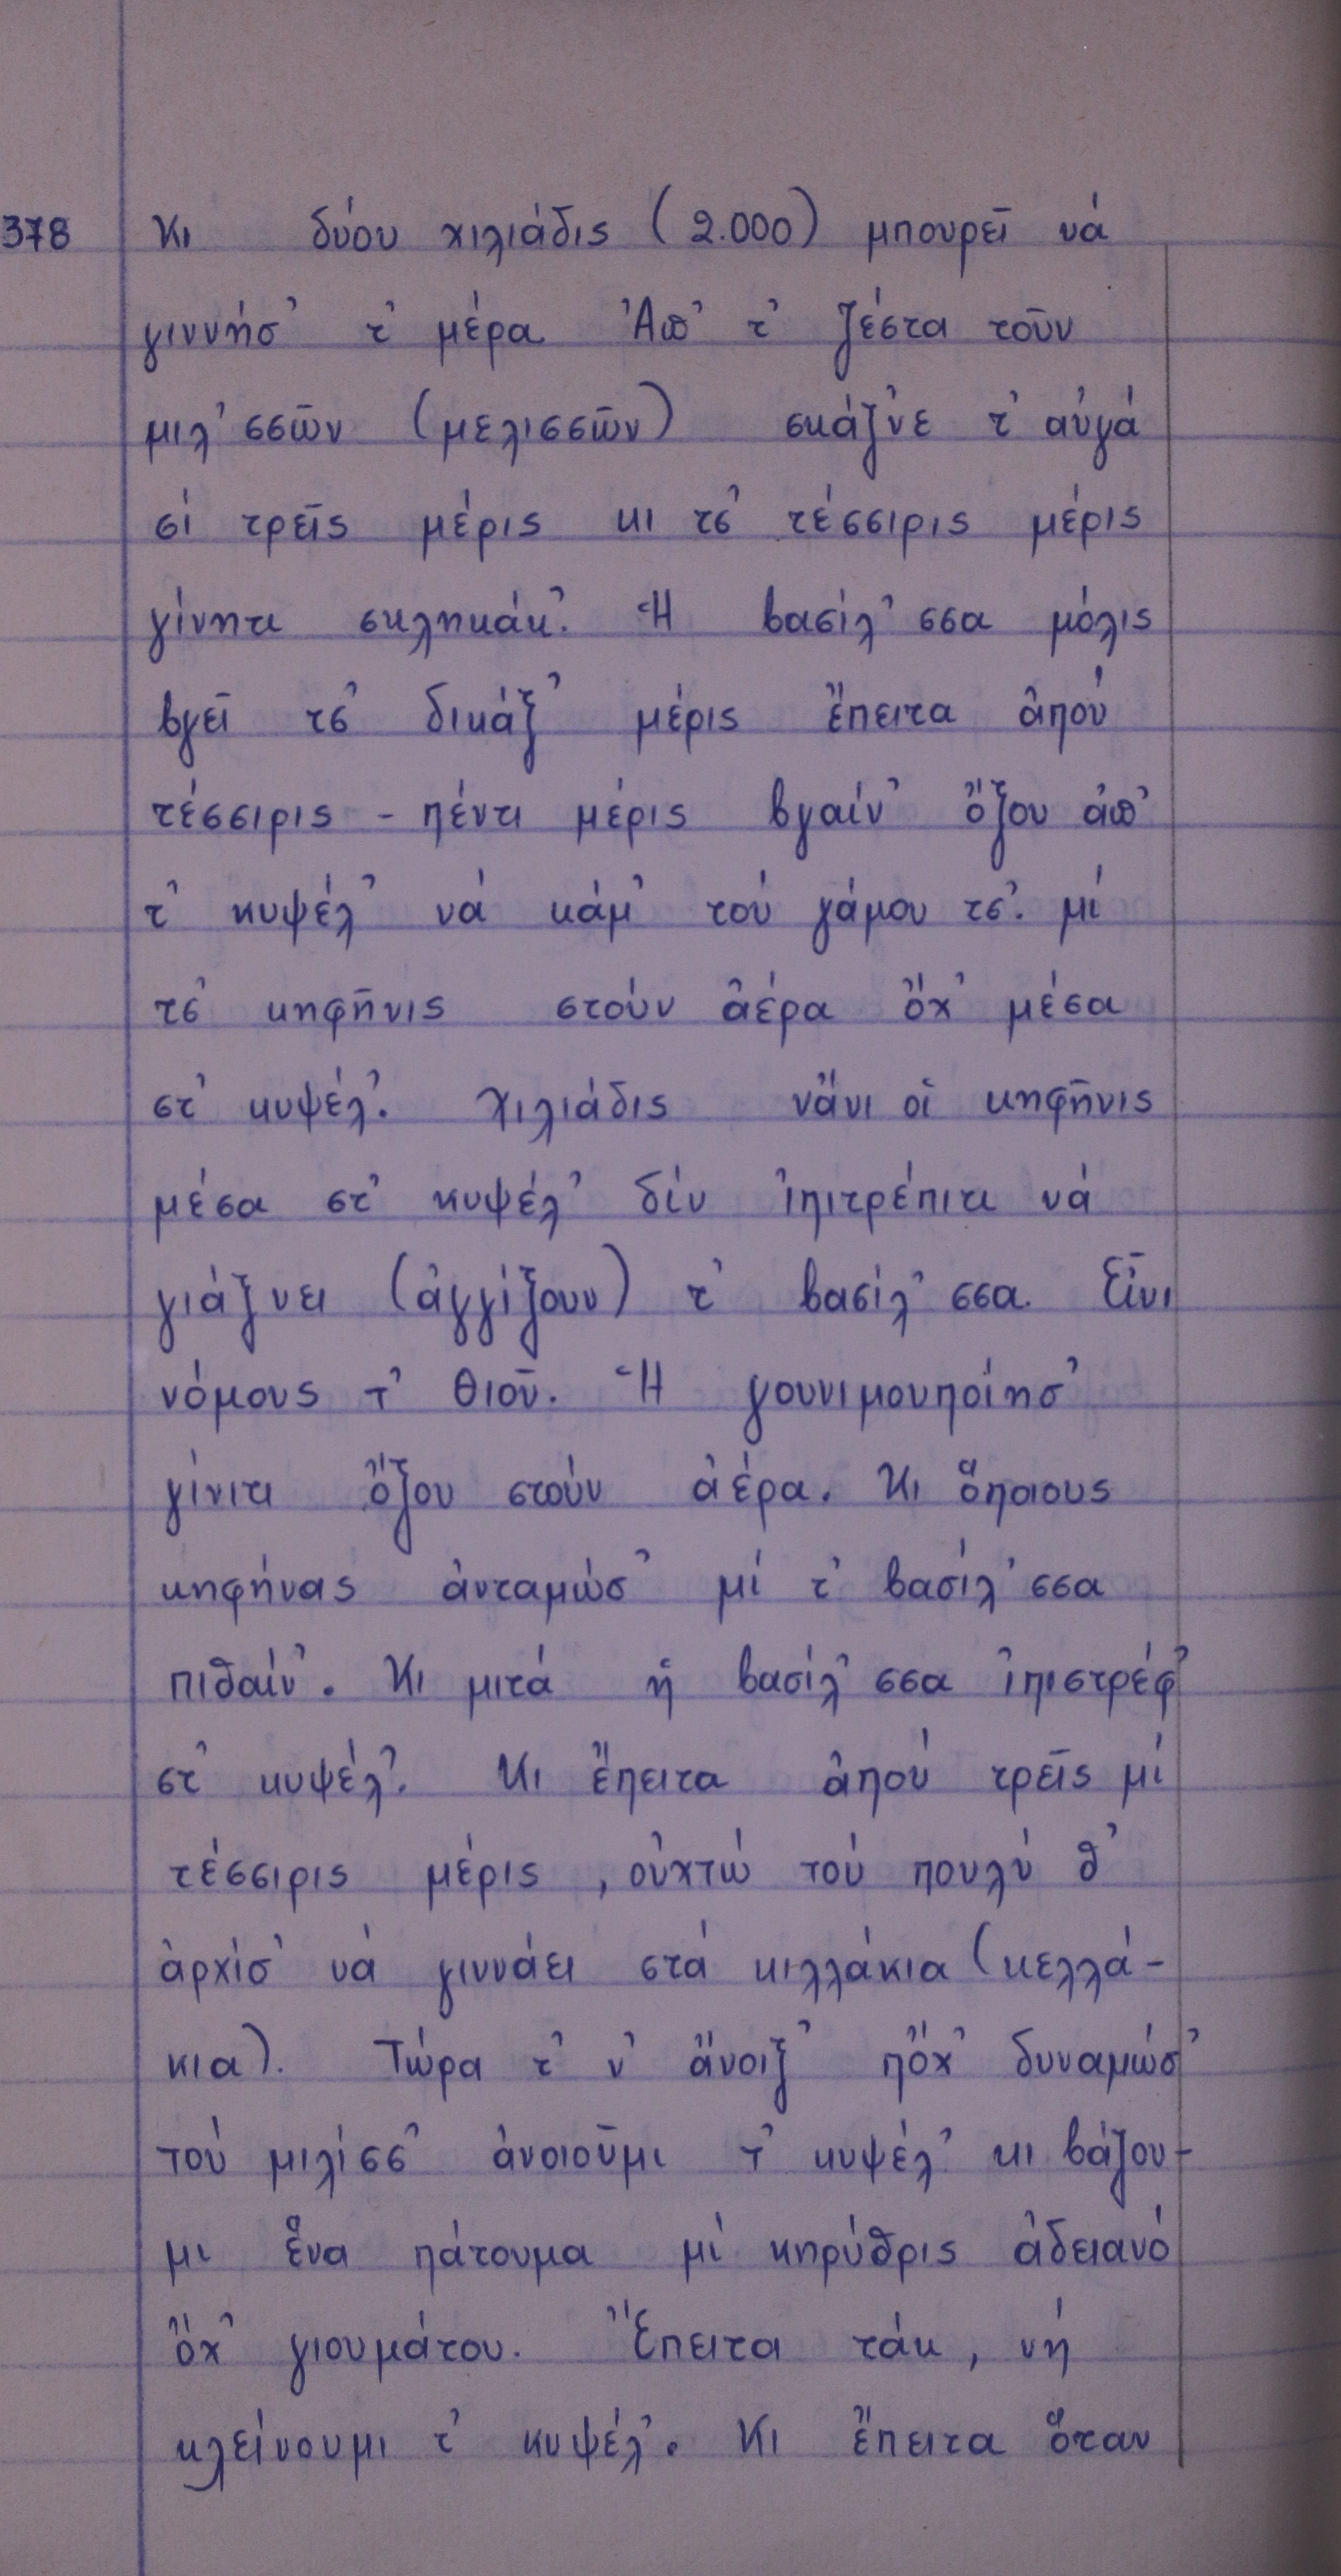 378 Κι δύου χιλιάδις (2.000) μπουρεῖ νά
γιννήσ' τ' μέρα. Ἀπ' τ' ζέστα τοῦν
μιλ'σσῶν (μελισσῶν) σκάζ'νε τ' αὐγά
σί τρεῖς μέρις κι τσ' τέσσιρις μέρις
γίνητι σκληκάκ'. Ἡ βασίλ'σσα μόλις
βγεῖ τσ' δικάξ' μέρις ἔπειτα ἀπού
τέσσιρις - πέντι μέρις βγαίν' ὄξου ἀπ'
τ' κυψέλ' νά κάμ' τού γάμου τσ'. μί
τσ' κηφῆνις στούν ἀέρα ὄχ' μέσα
στ' κυψέλ'. Χιλιάδις νἄνι οἱ κηφῆνις
μέσα στ' κυψέλ' δίν ἰπιτρέπιτι νά
γιάξνει (ἀγγίξουν) τ' βασίλ'σσα. Εἶνι
νόμους τ' Θιοῦ. Ἡ γουνιμουποίησ'
γίνιτι ὄξου στούν ἀέρα. Κι ὅποιους
κηφήνας ἀνταμώσ' μί τ' βασίλ'σσα
πιθαίν'. Κι μιτά ἡ βασίλ'σσα ἰπιστρέφ'
στ' κυψέλ'. Κι ἔπειτα ἀπού τρεῖς μί
τέσσιρις μέρις, οὐχτώ τού πουλύ θ'
ἀρχίσ' νά γιννάει στά κιλλάκια (κελλά-
κια). Τώρα τ' ν' ἄνοιξ' πὄχ' δυναμώσ'
τού μιλίσσ' ἀνοιοῦμι τ' κυψέλ' κι βάζου-
μι ἕνα πάτουμα μί κηρύθρις ἀδειανό
ὄχ' γιουμάτου. Ἔπειτα τάκ, νή
κλείνουμι τ' κυψέλ'. Κι ἔπειτα ὅταν